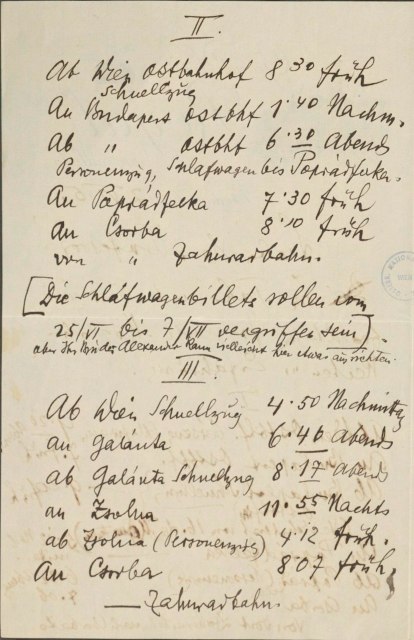 II.
Ab Wien Ostbahnhof 8·30 früh
Schnellzug
An Budapest Ostbhf 1·40 Nachm.
Ab " Ostbhf 6·30 Abends
Personenzug, Schlafwagen bis Poprádfelka.
An Poprádfelka 7·30 früh
an Csorba 8·10 früh
von " Zahnradbahn.
[Die Schlafwagenbillete sollen vom
25/VI bis 7/VII vergriffen sein].
aber Ihr Bruder Alexander kann vielleicht hier etwas ausrichten.
III.
Ab Wien Schnellzug 4·50 Nachmittag
an Galánta 6·46 Abends
ab Galánta Schnellzug 8·17 Abends
an Zsolna 11·55 Nachts
ab Zsolna (Personenzug) 4·12 früh.
An Csorba 8·07 früh.
— Zahnradbahn.